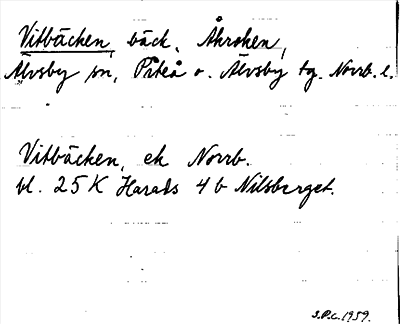 Vitbäcken, bäck, Åkroken,
Älvsby sn, Piteå o. Älvsby tg. Norrb. l.
Vitbäcken, ek Norrb.
bl. 25 K Harads 4 b Nilsberget.
S.P.L. 1959.